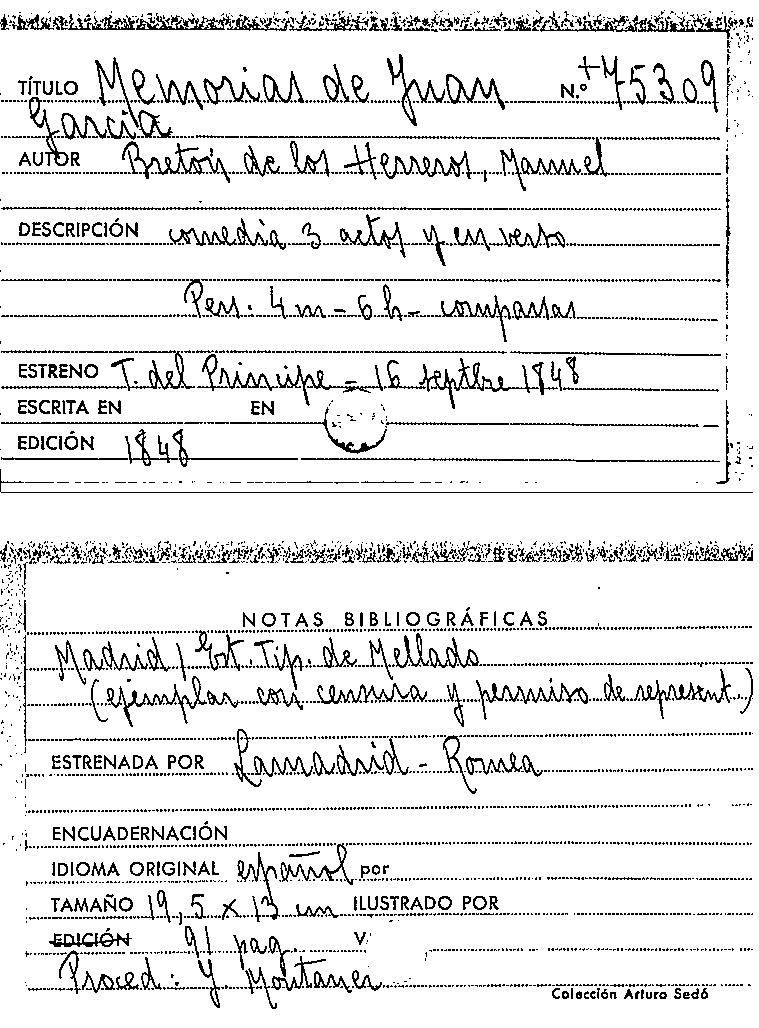 TÍTULO Memorias de Juan N.º +75309
García
AUTOR Bretón de los Herreros, Manuel
DESCRIPCIÓN comedia 3 actos y en verso
Pers. 4 m - 6 h - comparsas
ESTRENO T. del Príncipe = 16 septbre 1848
ESCRITA EN EN
EDICIÓN 1848
NOTAS BIBLIOGRÁFICAS
Madrid / Est. Tip. de Mellado
(ejemplar con censura y permiso de represent.)
ESTRENADA POR Lamadrid - Romea
ENCUADERNACIÓN
IDIOMA ORIGINAL español por
TAMAÑO 19,5 x 13 cm ILUSTRADO POR
EDICIÓN 91 pag. V
Proced: Y. Montaner
Colección Arturo Sedó